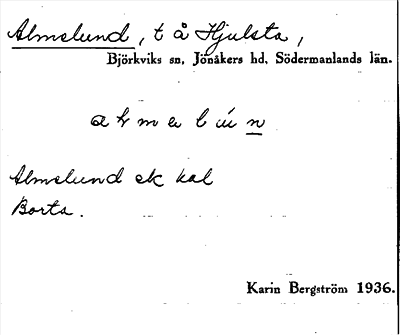 Almelund, t å Hjulsta,
Björkviks sn, Jönåkers hd, Södermanlands län.
Almelund ek kal
Borta.
Karin Bergström 1936.